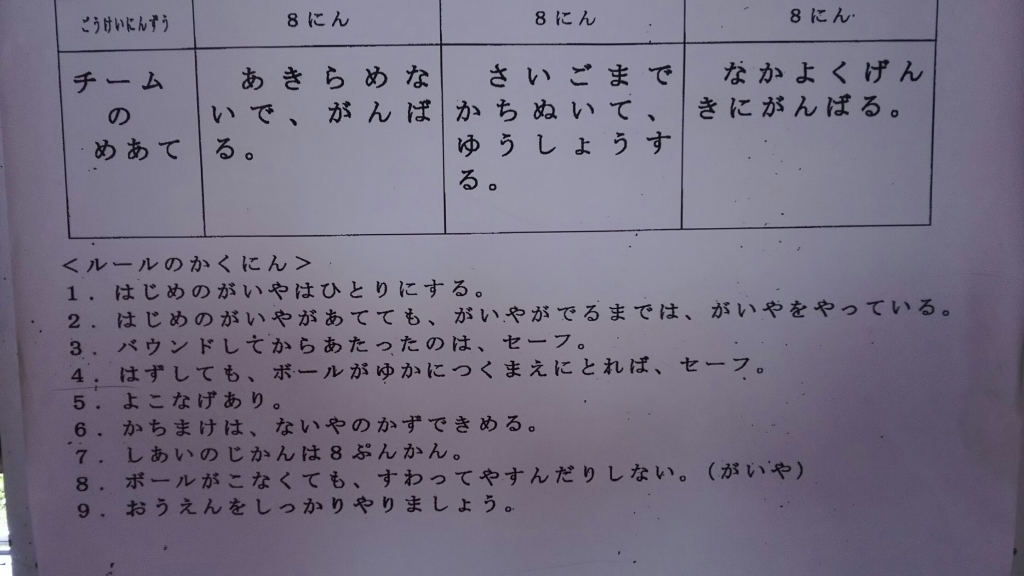 ごうけいにんずう 8にん 8にん 8にん
チーム
の
めあて
あきらめな
いで、がんば
る。
さいごまで
かちぬいて、
ゆうしょうす
る。
なかよくげん
きにがんばる。
<ルールのかくにん>
1．はじめのがいやはひとりにする。
2．はじめのがいやがあてても、がいやがでるまでは、がいやをやっている。
3．バウンドしてからあたったのは、セーフ。
4．はずしても、ボールがゆかにつくまえにとれば、セーフ。
5．よこなげあり。
6．かちまけは、ないやのかずできめる。
7．しあいのじかんは8ぷんかん。
8．ボールがこなくても、すわってやすんだりしない。（がいや）
9．おうえんをしっかりやりましょう。